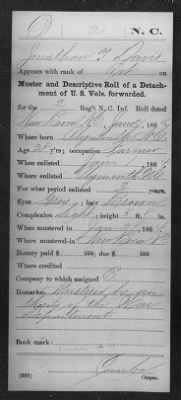 D 2 N. C.
Jonathan T. Davis
Appears with rank of Pvt on
Muster and Descriptive Roll of a Detach-
ment of U. S. Vols. forwarded.
for the 2 Reg't N. C. Inf. Roll dated
New Bern N.C. June, 186
Where born Plymouth N.C.
Age 21 y'rs; occupation Farmer
When enlisted Jan 1, 186
Where enlisted Plymouth N.C.
For what period enlisted 3 years.
Eyes Grey; hair Brown
Complexion Light; height 5 ft. in.
When mustered in Jan 21, 186
Where mustered in New Bern N.C.
Bounty paid $ 100; due $ 100
Where credited
Company to which assigned
Remarks: Mustered by
of the War
Department
Book mark:
(339) Copyist.